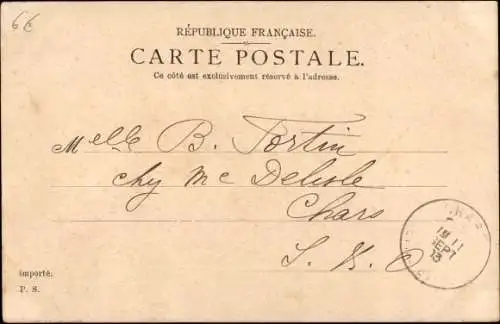 6€
RÉPUBLIQUE FRANÇAISE.
CARTE POSTALE.
Ce côté est exclusivement réservé à l'adresse.
Melle B. Fortin
chy Mc Delisle
Chars
S. &. O
19 11
SEPT
03
importé.
P. S.